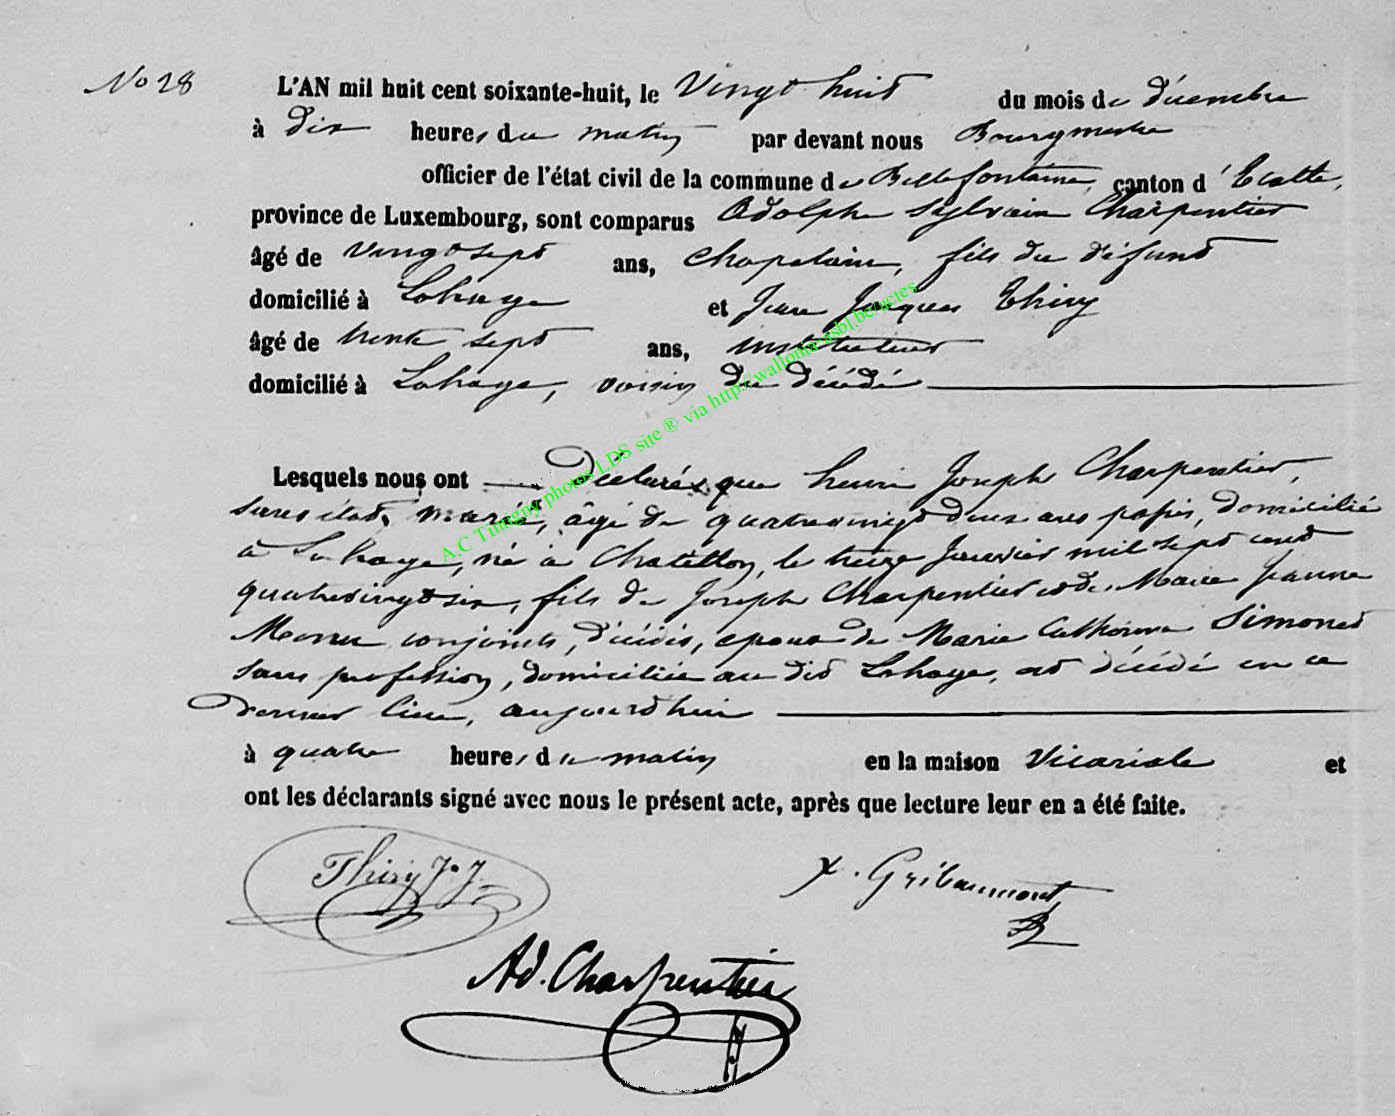 No 28
L'AN mil huit cent soixante-huit, le Vingt huit du mois de décembre
à dix heures du matin par devant nous Bourgmestre
officier de l'état civil de la commune de Bellefontaine, canton d'Etalle,
province de Luxembourg, sont comparus Adolphe Sylvain Charpentier
âgé de vingt sept ans, chapelain, fils du défunt
domicilié à Lahage et Jean Jacques Thiry
âgé de trente sept ans, instituteur
domicilié à Lahage, voisin du décédé
Lesquels nous ont Déclarés que henri Joseph Charpentier,
sans état, marié, âgé de quatrevingt deux ans passés, domicilié
à Lahage, né à Chatillon, le treize Janvier mil sept cent
quatrevingt six, fils de Joseph Charpentier et de Marie Jeanne
conjoints, décédés, epoux de Marie Catherine Simonet
sans profession, domiciliée au dit Lahage, est décédé en ce
dernier lieu, aujourdhui
à quatre heures du matin en la maison Vicariale et
ont les déclarants signé avec nous le présent acte, après que lecture leur en a été faite.
Thiry J. J. X. Gribaumont
Ad. Charpentier
A.C Tintigny photos LDS site ® via http://wallonia-asbl.be/actes